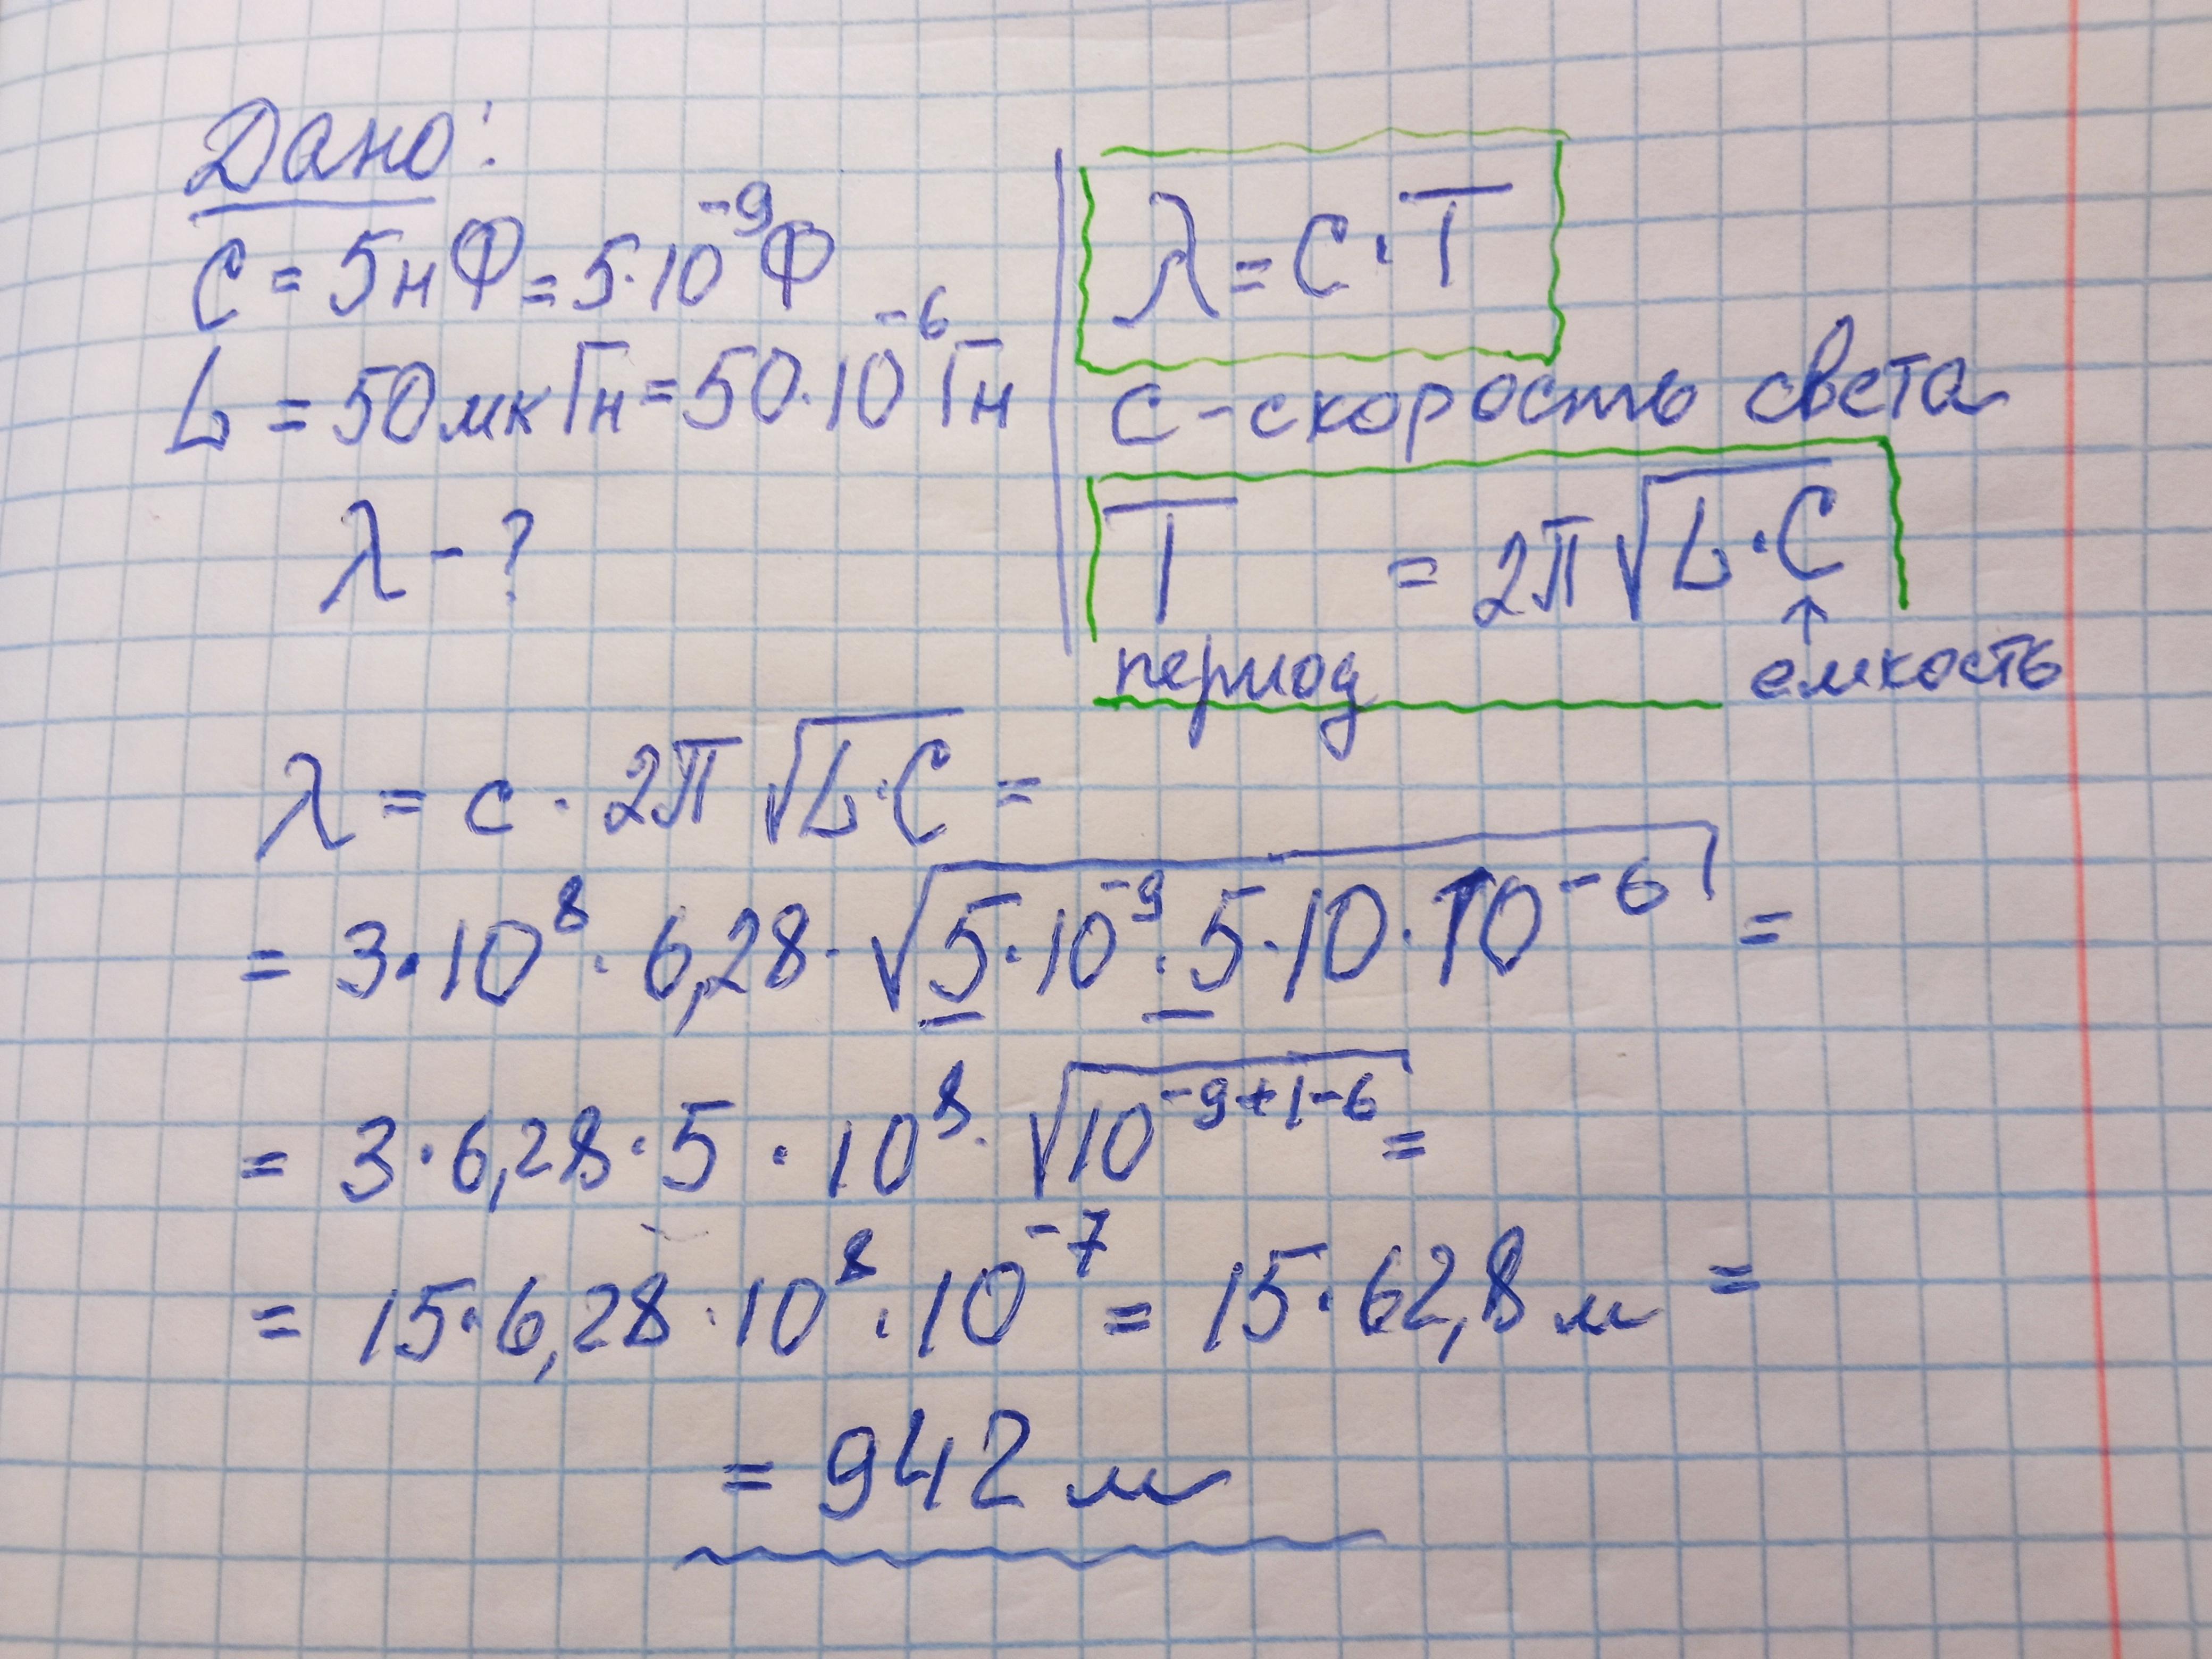 Дано:
C = 5нФ = 5·10⁻⁹Ф
L = 50мкГн = 50·10⁻⁶Гн
λ - ?
λ = c · T
c - скорость света
T = 2π√(L·C)
период
↑
емкость
λ = c · 2π √(L·C) =
= 3·10⁸ · 6,28 · √(5·10⁻⁹ · 5·10·10⁻⁶) =
= 3·6,28·5 · 10⁸ · √(10⁻⁹⁺¹⁻⁶) =
= 15·6,28·10⁸·10⁻⁷ = 15·62,8 м =
= 942 м